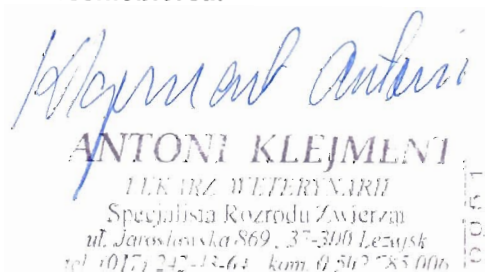 Klejment Antoni
ANTONI KLEJMENT
LEKARZ WETERYNARII
Specjalista Rozrodu Zwierząt
ul. Jarosławska 869, 37-300 Leżajsk
tel. (017) 242-13-64 kom. 0 502 785 006